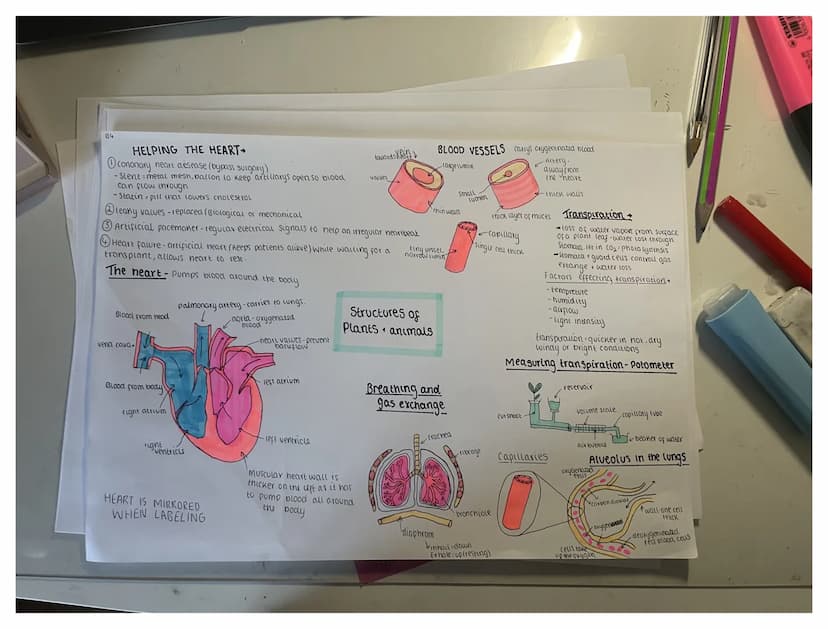 HELPING THE HEART→
① coronary heart disease (bypass surgery)
- Stent: metal mesh, ballon to keep artillarys open so blood
can flow through
- Statin: pill that lowers cholestrol
② leaky valves - replaced (biological or mechanical
③ Artificial pacemaker - regular electrical signals to help an irregular heartbeat
④ Heart failure - artificial heart (keeps patients alive) while waiting for a
transplant, allows heart to rest.
The heart - Pumps blood around the body
pulmonary artery - carries to lungs.
Blood from head
aorta - oxygenated
blood
heart valves - prevent
backflow
vena cava
left atrium
Blood from body
right atrium
right
ventricls
left ventricls
Muscular heart wall is
thicker on the left as it has
to pump blood all around
the body
HEART IS MIRRORED
WHEN LABELING
BLOOD VESSELS
carrys oxygenated blood
vein
large lumen
thin walls
artery -
away from
the heart
small
lumen
thick walls
thick layer of mucles
capillary
single cell thick
tiny vessel
narrow lumen
Structures of
Plants + animals
Transpiration →
→ loss of water vapor from surface
of a plant leaf - water loss through
stomata
guard cells control gas
exhange + water loss
Factors effecting transpiration→
- tempreture
- humidity
- airflow
- light intensity
transpiration - quicker in hot, dry
windy or bright conditions
Measuring transpiration - Potometer
reservoir
cut shoot
volume scale
capillary tube
air bubble
beaker of water
Breathing and
gas exchange
trachea
ribcage
bronchiole
diaphram
inhale: down
Exhale: up (resting)
Capillaries
Alveolus in the lungs
oxygenated
carbon dioxide
oxygen
wall - one cell
thick
deoxygenated
red blood cells
cells take
up the oxygen